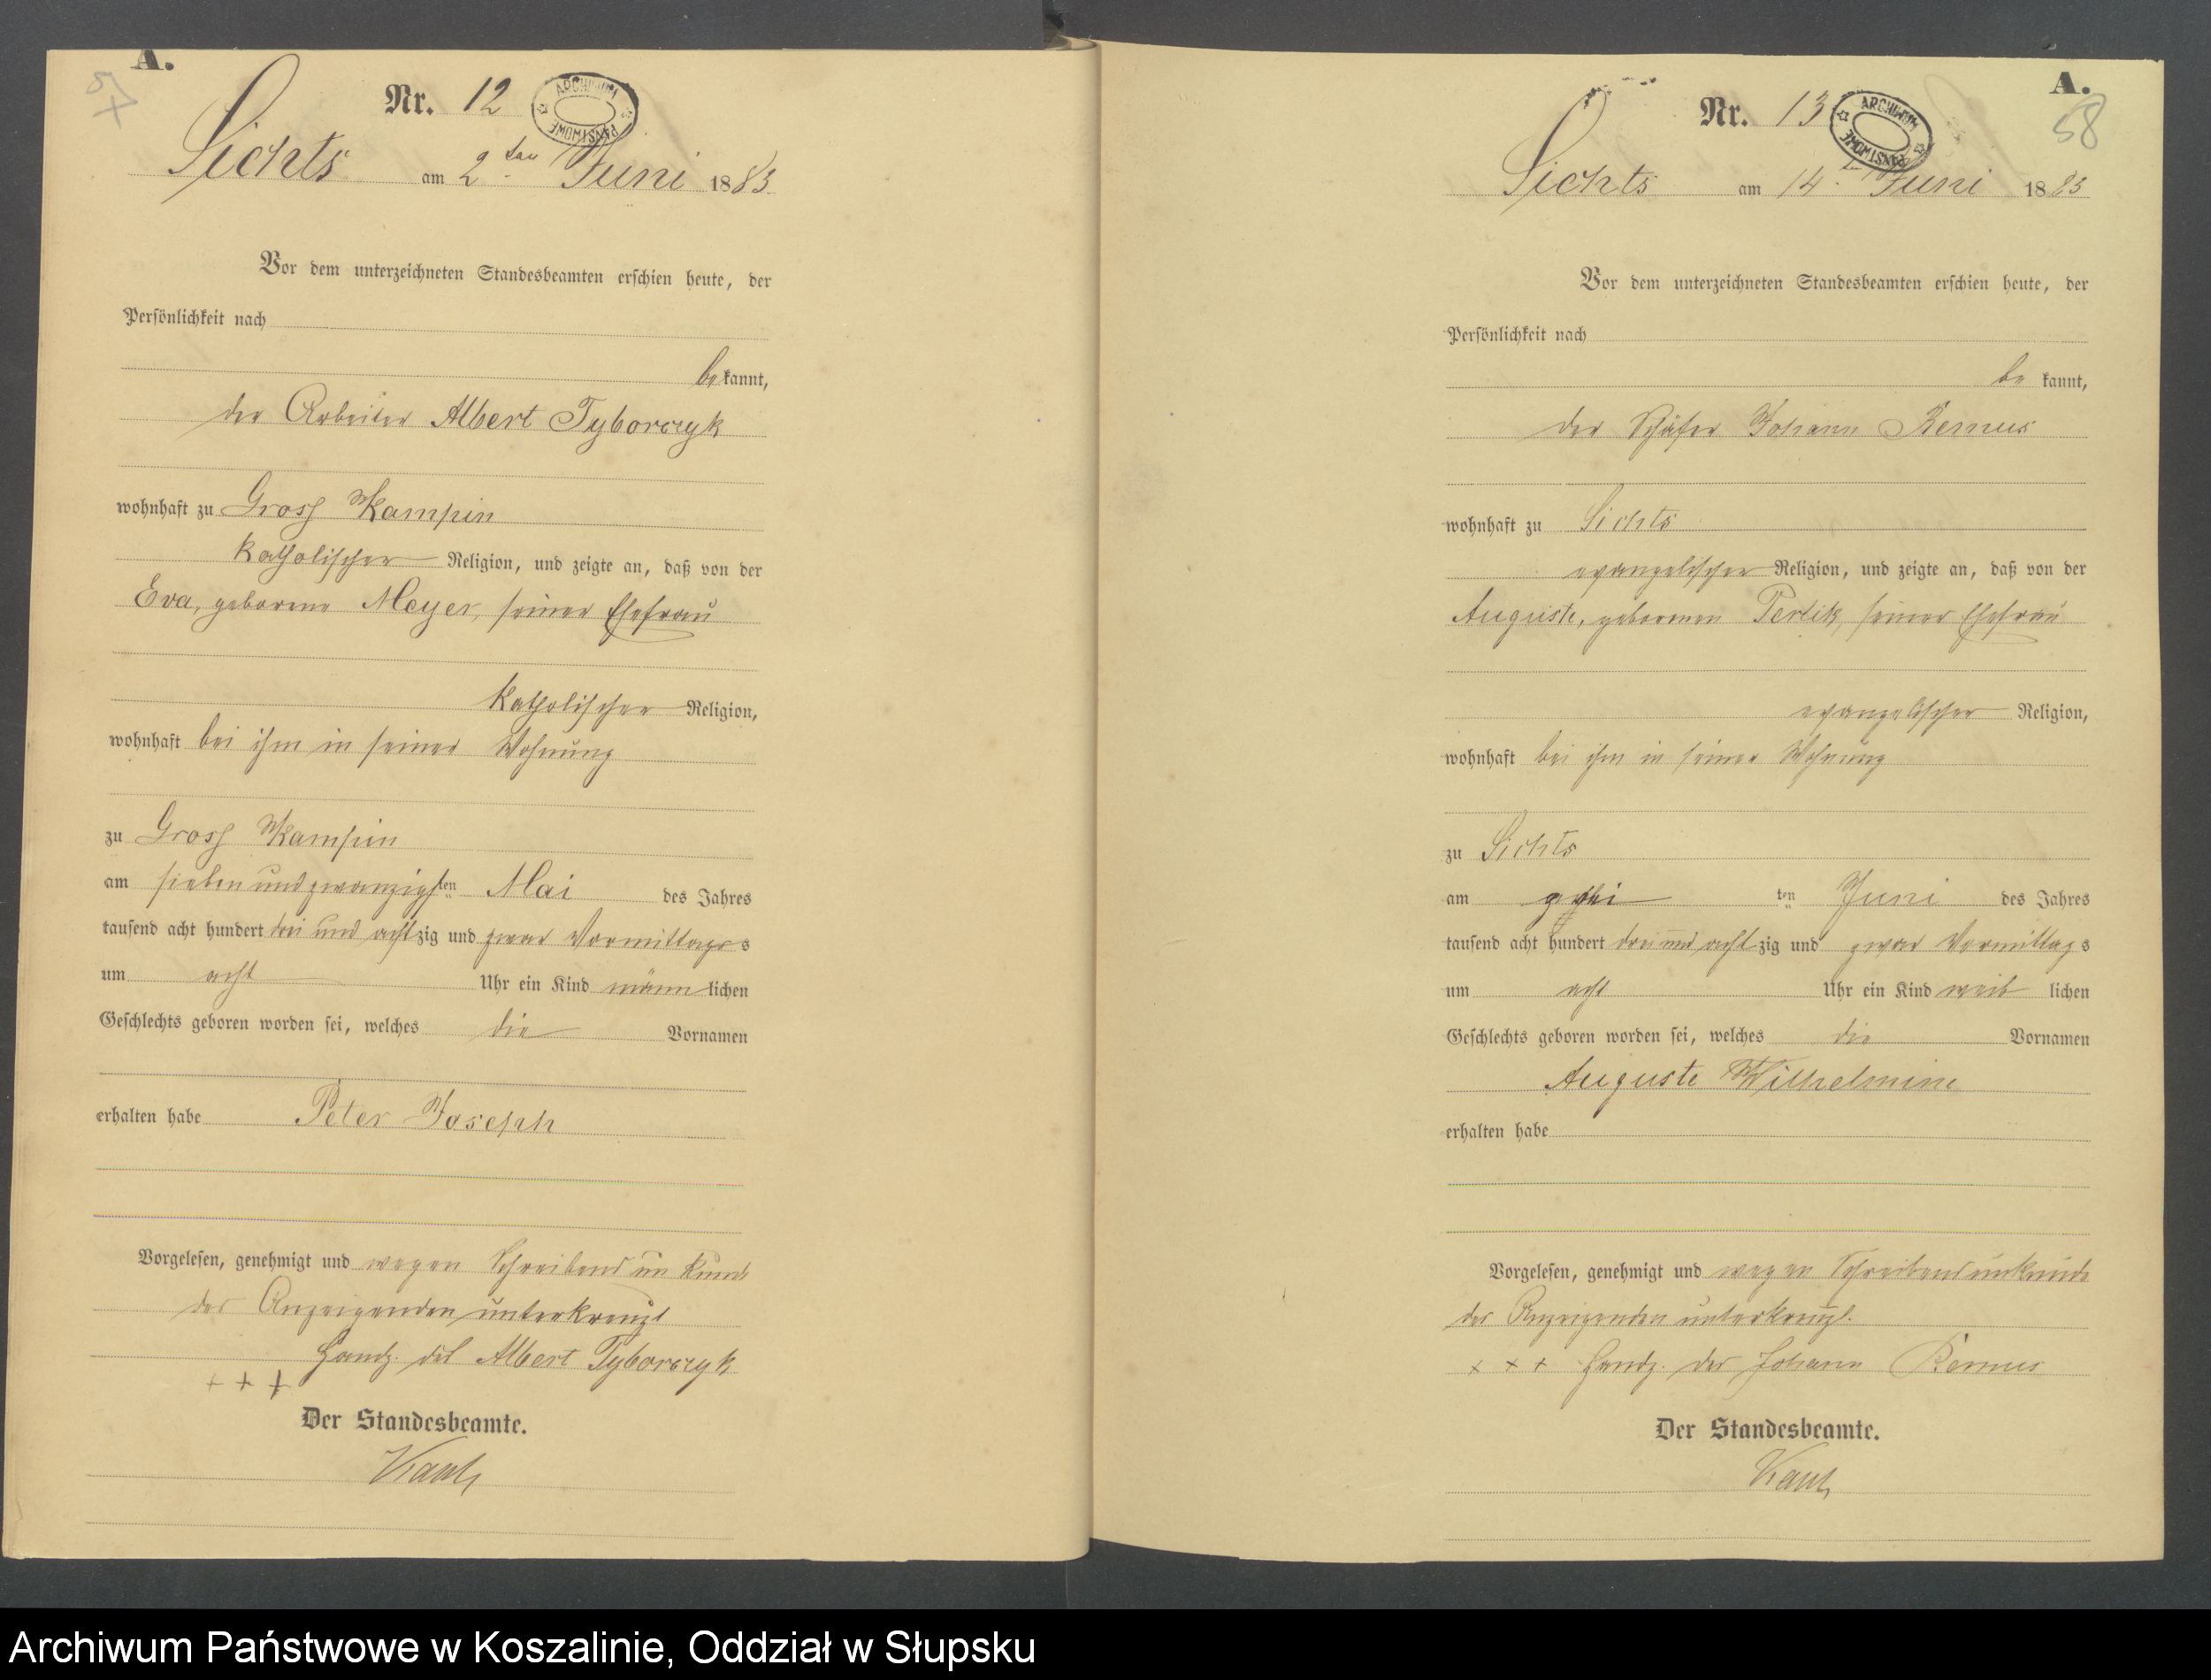 A.
57
Nr. 12
ARCHIWUM PAŃSTWOWE
Lichts am 2ten Juni 1883
Vor dem unterzeichneten Standesbeamten erschien heute, der
Persönlichkeit nach
bekannt,
der Arbeiter Albert Tyborczyk
wohnhaft zu Gross Kampin
katholischer Religion, und zeigte an, daß von der
Eva, geborene Meyer, seiner Ehefrau
katholischer Religion,
wohnhaft bei ihm in seiner Wohnung
zu Gross Kampin
am sieben und zwanzigsten Mai des Jahres
tausend acht hundert drei und achtzig und zwar Vormittags
um acht Uhr ein Kind männlichen
Geschlechts geboren worden sei, welches die Vornamen
erhalten habe Peter Joseph
Vorgelesen, genehmigt und wegen Schreibens un kunde
des Anzeigenden unterkreuzt
Handz. des Albert Tyborczyk
+ + +
Der Standesbeamte.
A.
58
Nr. 13
ARCHIWUM PAŃSTWOWE
Lichts am 14. Juni 1883
Vor dem unterzeichneten Standesbeamten erschien heute, der
Persönlichkeit nach
be kannt,
der Schäfer Johann Remus
wohnhaft zu Lichts
evangelischer Religion, und zeigte an, daß von der
Auguste, geborenen Perlik, seiner Ehefrau
evangelischer Religion,
wohnhaft bei ihm in seiner Wohnung
zu Lichts
am zwei ten Juni des Jahres
tausend acht hundert drei und achtzig und zwar Vormittags
um acht Uhr ein Kind weib lichen
Geschlechts geboren worden sei, welches die Vornamen
Auguste Wilhelmine
erhalten habe
Vorgelesen, genehmigt und wegen Schreibensunkunde
des Anzeigenden unterkreuzt.
+ + + Handz. des Johann Remus
Der Standesbeamte.
Archiwum Państwowe w Koszalinie, Oddział w Słupsku